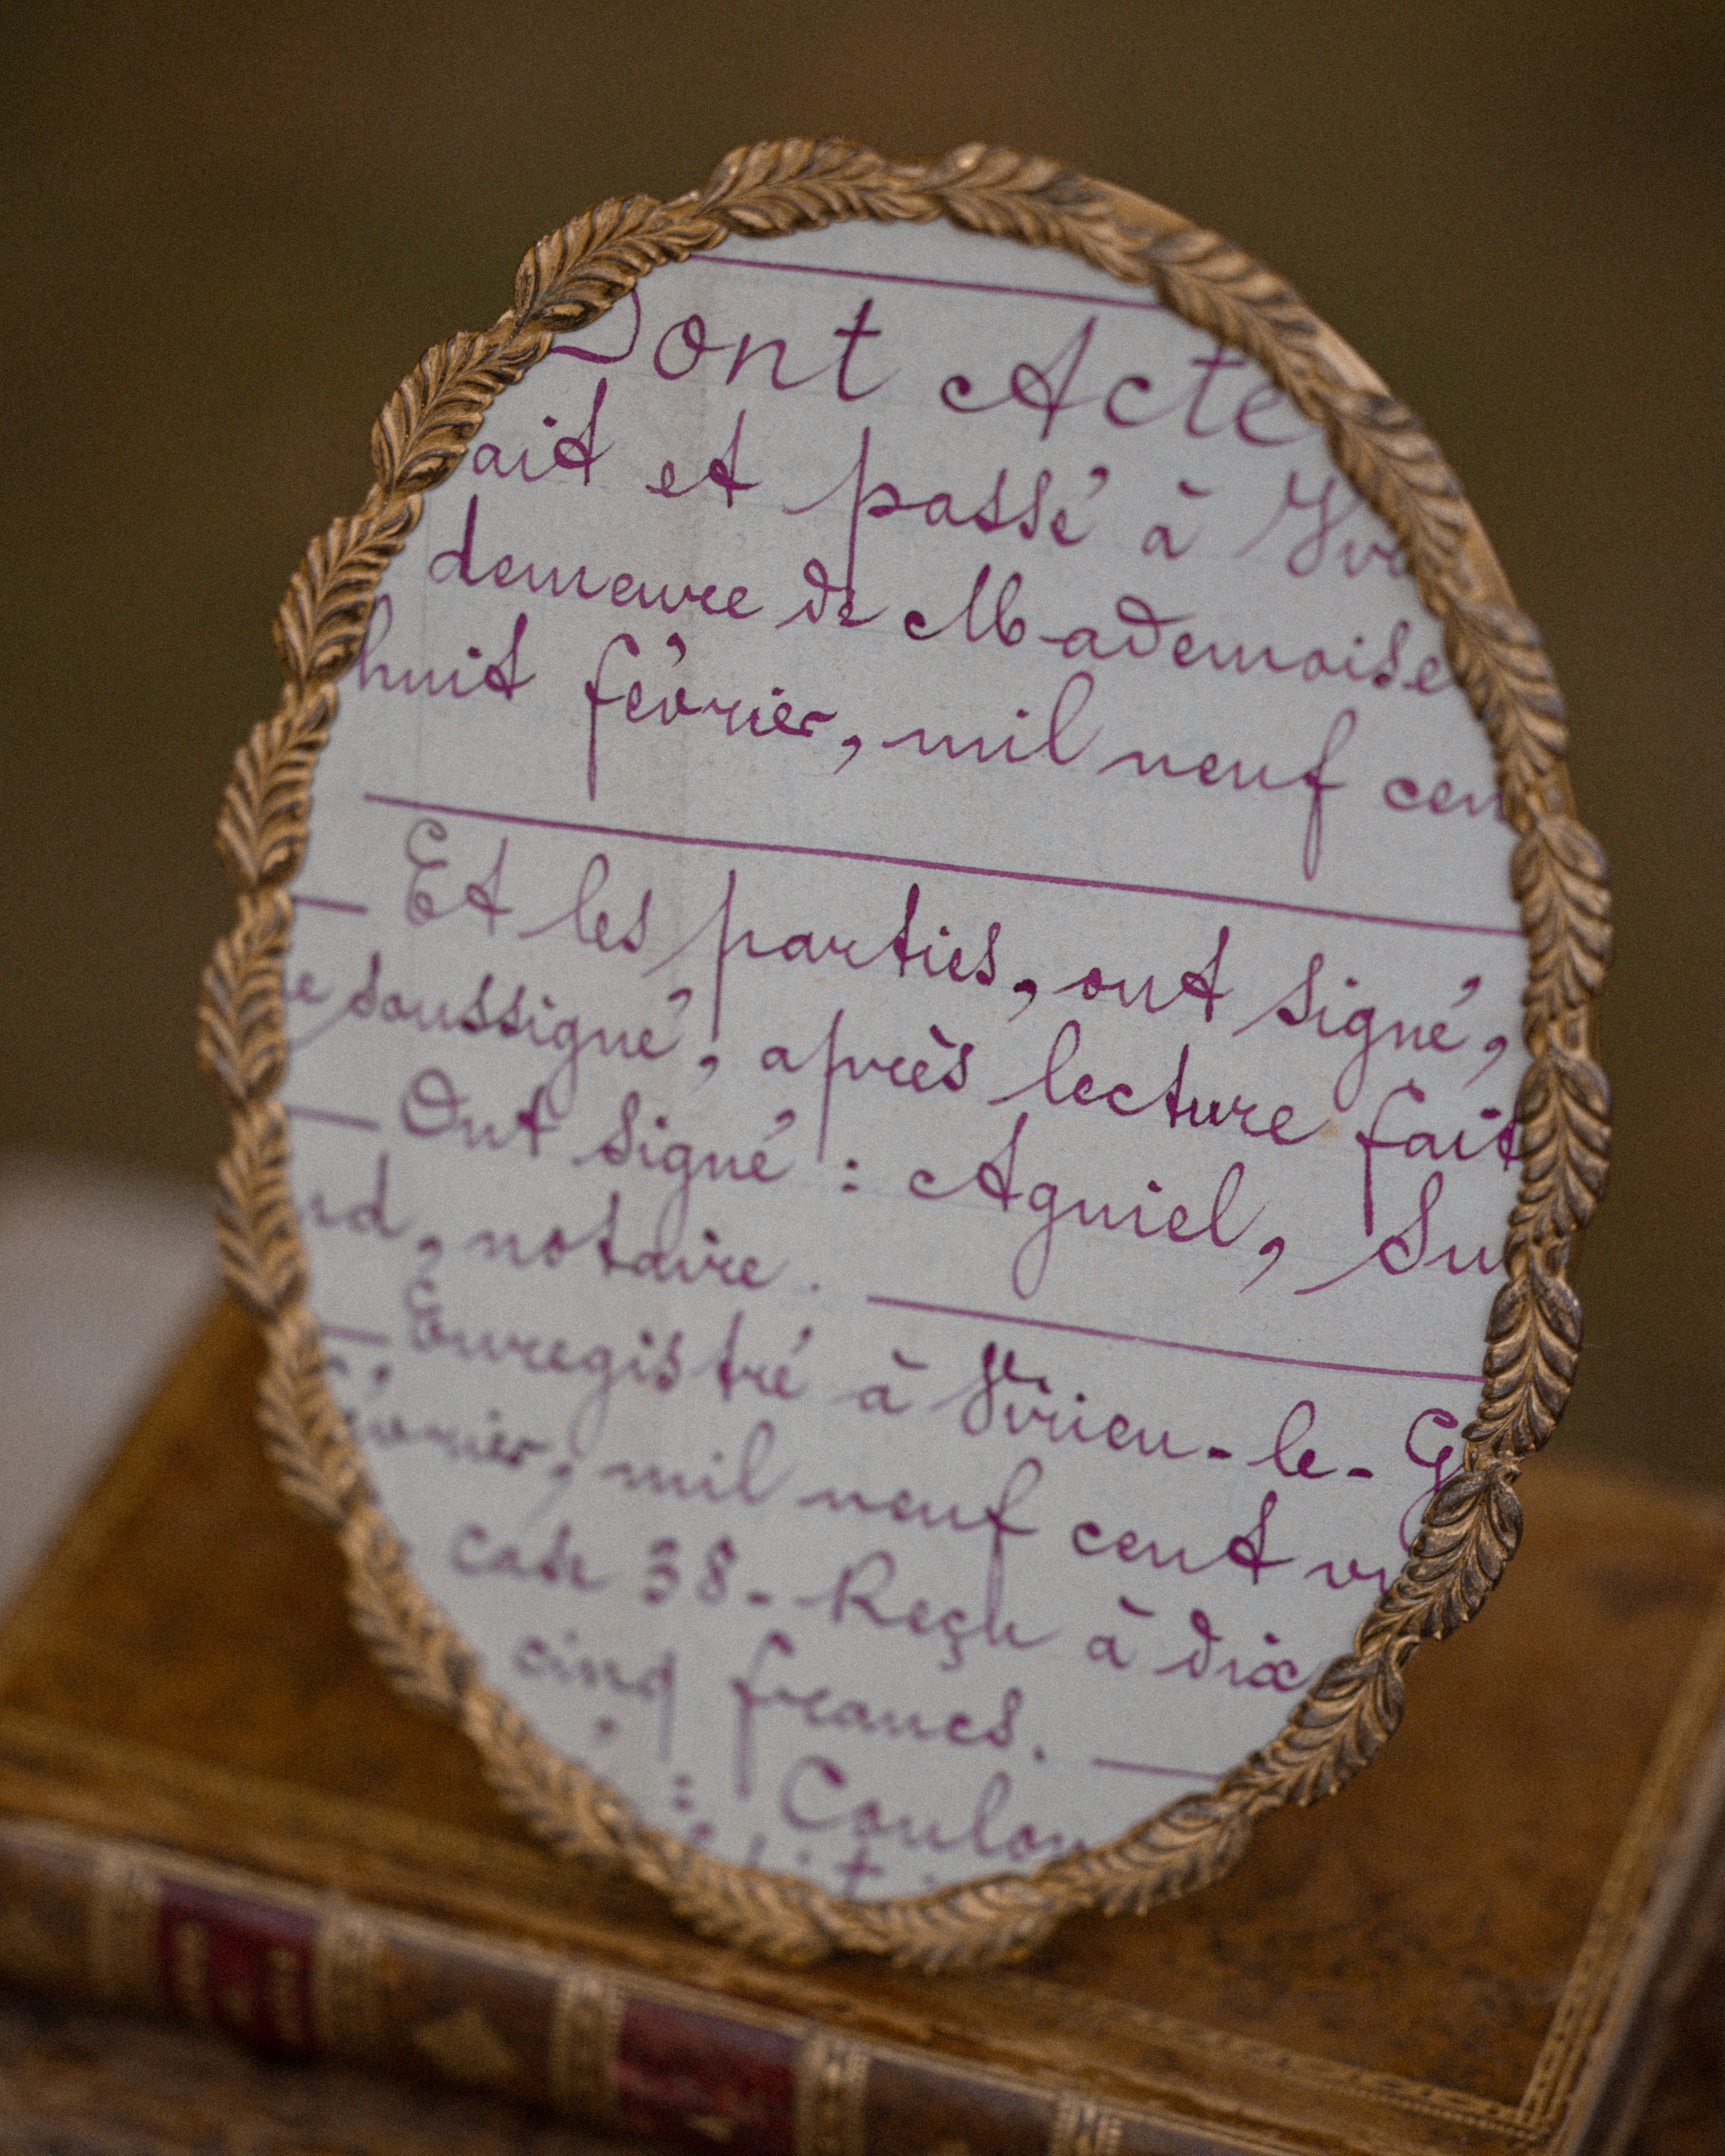 Dont Acte
ait et passé à
demeure de Mademoise
huit février, mil neuf cen
— Et les parties, ont signé,
soussigné, après lecture fait
— Ont signé : Aguiel, Su
rd, notaire.
— Enregistré à Vvrieu-le-G
évrier, mil neuf cent v
case 38 - Reçu à dix
cinq francs. —
: Coulon